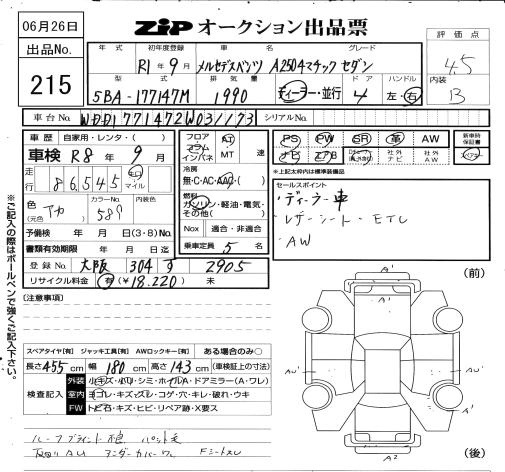 06月26日
ZIP オークション出品票
出品No.
215
評価点
4.5
内装
B
年式 初年度登録 車名 グレード
R1年9月 メルセデスベンツ A250 4マチック セダン
型式 排気量 ドア ハンドル
5BA-177147M 1990 ディーラー・並行 4 左・右
車台No. WDD1771472W031173 シリアルNo.
車歴 自家用・レンタ・( )
車検 R8年9月
走行 86,545 km マイル
色 (元色) アカ カラーNo. 589 内装色
予備検 年 月 日(3・8)No.
書類有効期限 年 月 日迄
登録No. 大阪 304 す 2905
リサイクル料金 有(¥18,220) 未
フロア コラム インパネ AT MT 速
冷房 無・C・AC・AAC・( )
燃料 ガソリン・軽油・電気・その他( )
Nox 適合・非適合
乗車定員 5名
PS PW SR 革 AW 新車時保証書
ナビ 社外ナビ 社外AW
*上記太枠内は標準装備品
セールスポイント
・ディーラー車
・レザーシート・ETC
・AW
(注意事項)
スペアタイヤ[有] ジャッキ工具[有] AWロックキー[有] ある場合のみ○
長さ455cm 幅180cm 高さ143cm (車検証上の寸法)
検査記入
外装 小キズ・小凹・シミ・ホイルA・ドアミラー(A・ワレ)
室内 ヨゴレ・キズ・スレ・コゲ・穴・キレ・破れ・ウキ
FW トビ石・キズ・ヒビ・リペア跡・X要ス
アンダーカバーワレ Fシートスレ
※ご記入の際はボールペンで強くご記入下さい。
(前)
A'
A'
AU'
AU'
A2
(後)